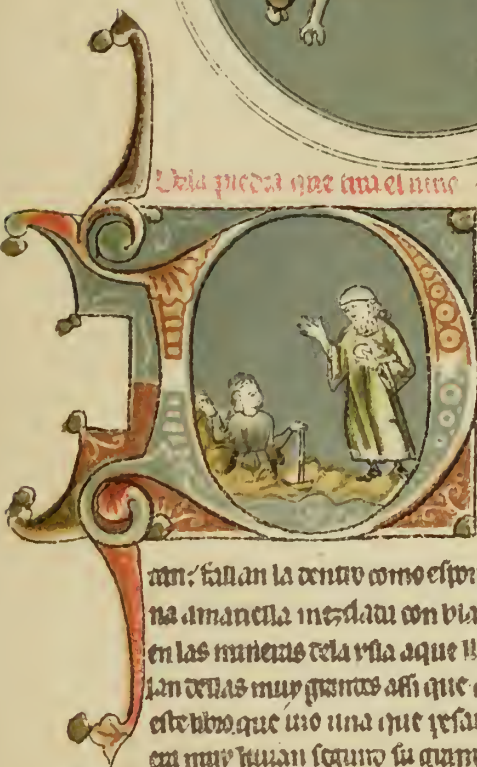 Dela piedra que tira el uino
D
tan; fallan la dentro como espon
na amariella mezclada con bla
en las mineras dela ysla aque ll
lan dellas muy grandes assi que
este libro. que uio una que pesa
era muy liuian segund su grand